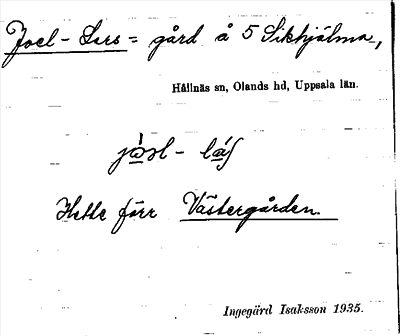 Joel-Lars = gård å 5 Sikhjälma,
Hållnäs sn, Olands hd, Uppsala län.
jòəl - láʃ
Hette förr Västergården.
Ingegärd Isaksson 1935.